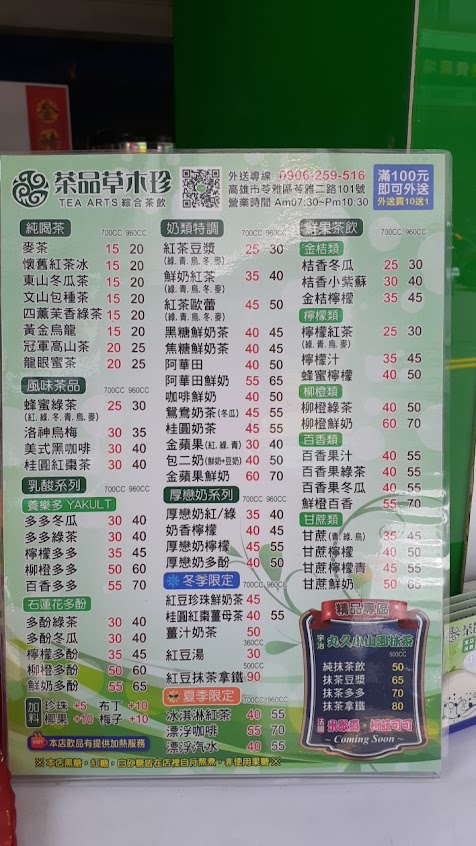 茶品草木珍
TEA ARTS 綜合茶飲
外送專線 0906-259-516
高雄市苓雅區苓雅二路101號
營業時間 Am07:30~Pm10:30
滿100元
即可外送
外送買10送1
純喝茶 700CC 960CC
麥茶 15 20
懷舊紅茶冰 15 20
東山冬瓜茶 15 20
文山包種茶 15 20
四薰茉香綠茶 15 20
黃金烏龍 15 20
冠軍高山茶 20 25
龍眼蜜茶 20 25
風味茶品 700CC 960CC
蜂蜜綠茶 25 30
(紅.綠.冬.青.烏.麥)
洛神烏梅 30 35
美式黑咖啡 30 40
桂圓紅棗茶 30 40
乳酸系列 700CC 960CC
養樂多 YAKULT
多多冬瓜 30 40
多多綠茶 30 40
檸檬多多 35 45
柳橙多多 50 60
百香多多 55 70
石蓮花多酚
多酚綠茶 30 40
多酚冬瓜 30 40
檸檬多酚 35 45
柳橙多酚 50 60
鮮奶多酚 55 65
加料 珍珠+5 布丁+10
椰果+10 梅子+10
HOT 本店飲品有提供加熱服務
奶類特調 700CC 960CC
紅茶豆漿 25 30
(綠.青.烏.冬.麥)
鮮奶紅茶 35 40
(綠.青.烏.冬.麥)
紅茶歐蕾 45 50
(綠.青.烏.冬.麥)
黑糖鮮奶茶 40 45
焦糖鮮奶茶 40 45
阿華田 40 50
阿華田鮮奶 55 65
咖啡鮮奶 40 50
鴛鴦奶茶(冬瓜) 45 55
桂圓奶茶 45 55
金蘋果(紅.綠.青) 30 40
包二奶(鮮奶+豆奶) 40 50
金蘋果鮮奶 60 70
厚戀奶系列 700CC 960CC
厚戀奶紅/綠 35 40
奶香檸檬 40 45
厚戀奶檸檬 45 55
厚戀奶多酚 40 50
冬季限定 700CC 960CC
紅豆珍珠鮮奶 45
桂圓紅棗薑母茶 40 45
薑汁奶茶 50
360CC
紅豆湯 30
500CC
紅豆抹茶拿鐵 90
夏季限定 700CC 960CC
冰淇淋紅茶 40 55
漂浮咖啡 55 70
漂浮汽水 40 55
鮮果茶飲 700CC 960CC
金桔類
桔香冬瓜 25 30
桔香小紫蘇 30 40
金桔檸檬 35 45
檸檬類
檸檬紅茶 25 30
(綠.青.烏.冬.麥)
檸檬汁 35 45
蜂蜜檸檬 40 50
柳橙類
柳橙綠茶 40 50
柳橙鮮奶 60 70
百香類
百香果汁 40 55
百香果綠茶 40 55
百香果冬瓜 40 55
鮮橙百香 55 70
甘蔗類
甘蔗(青.綠.烏) 35 45
甘蔗檸檬 40 50
甘蔗檸檬青 45 55
甘蔗鮮奶 50 65
精品專區
宇治 丸久小山園抹茶
500CC
純抹茶飲 50
抹茶豆漿 65
抹茶多多 70
抹茶拿鐵 80
法國
~ Coming Soon ~
※本店黑糖，紅糖，白砂糖皆在店裡自行熬煮，非使用果糖※